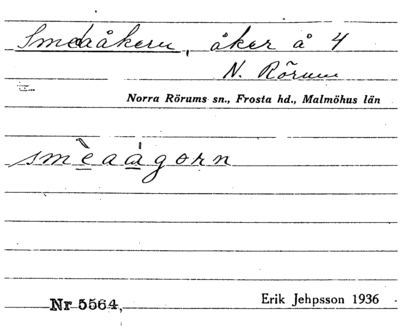 Smedaåkern, åker å 4
N. Rörum
Norra Rörums sn., Frosta hd., Malmöhus län
smèaágorn
Nr 5564,
Erik Jehpsson 1936